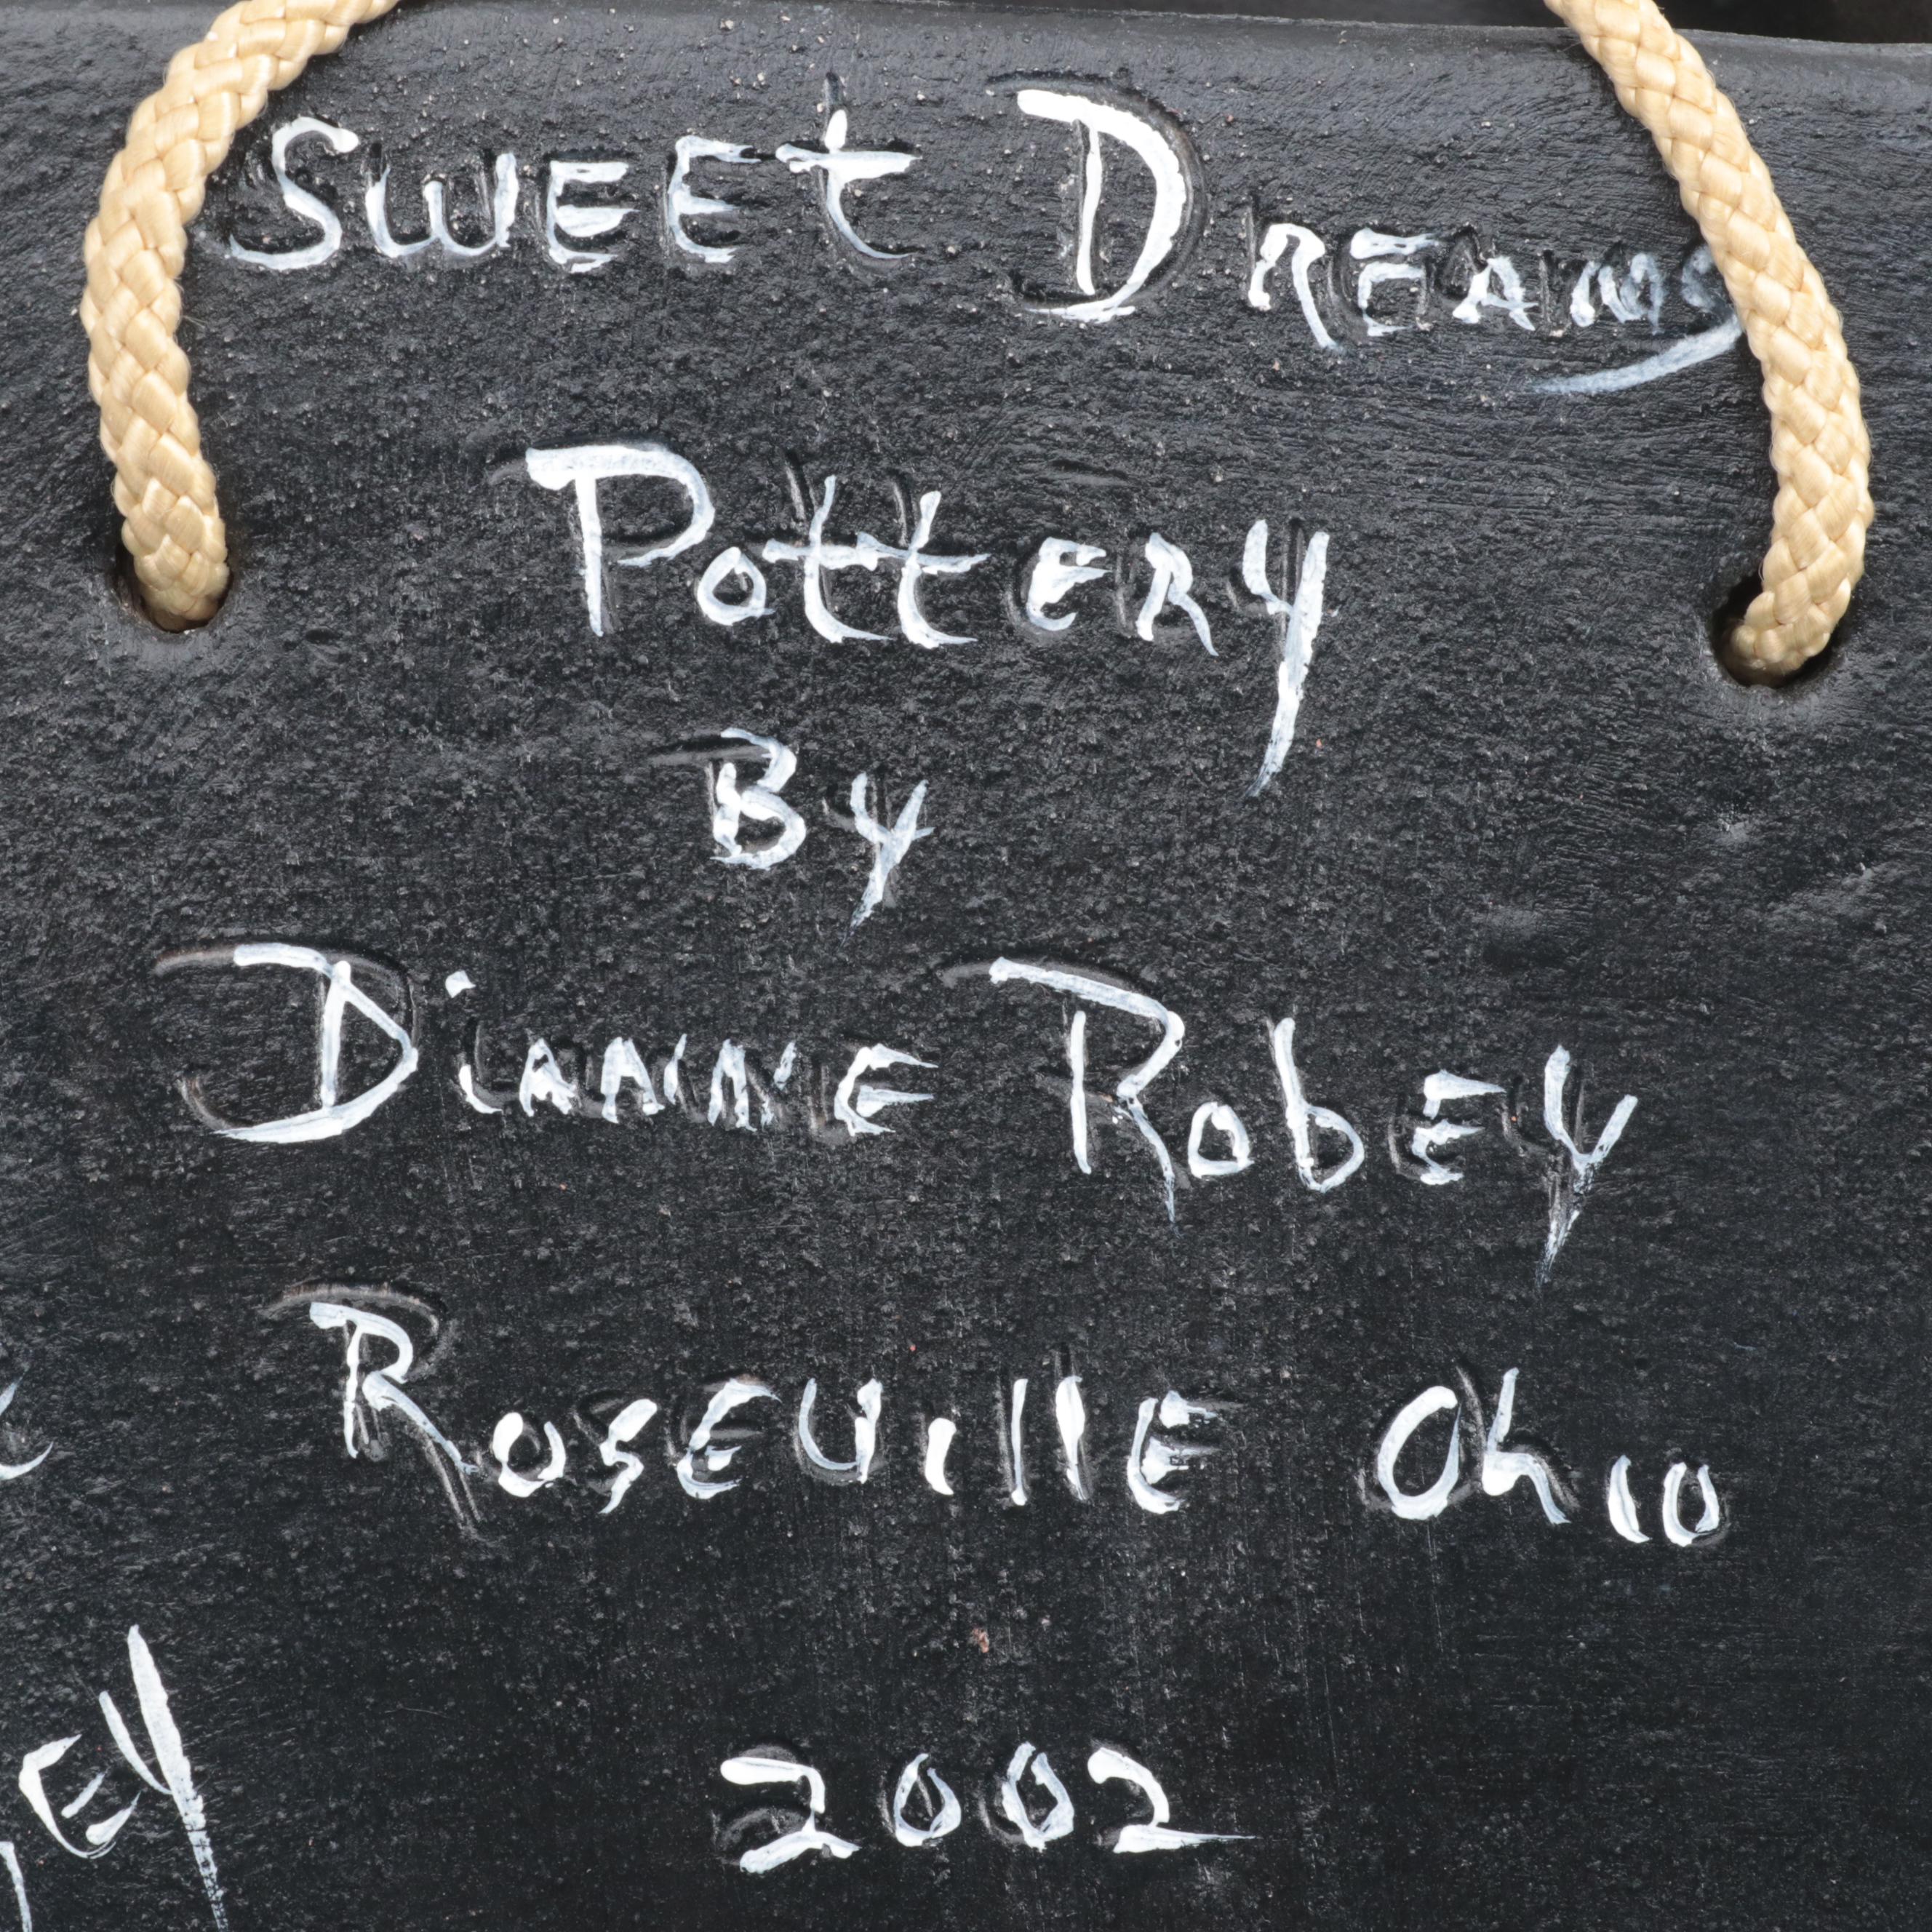 Sweet Dreams
Pottery
By
Dianne Robey
Roseville Ohio
2002